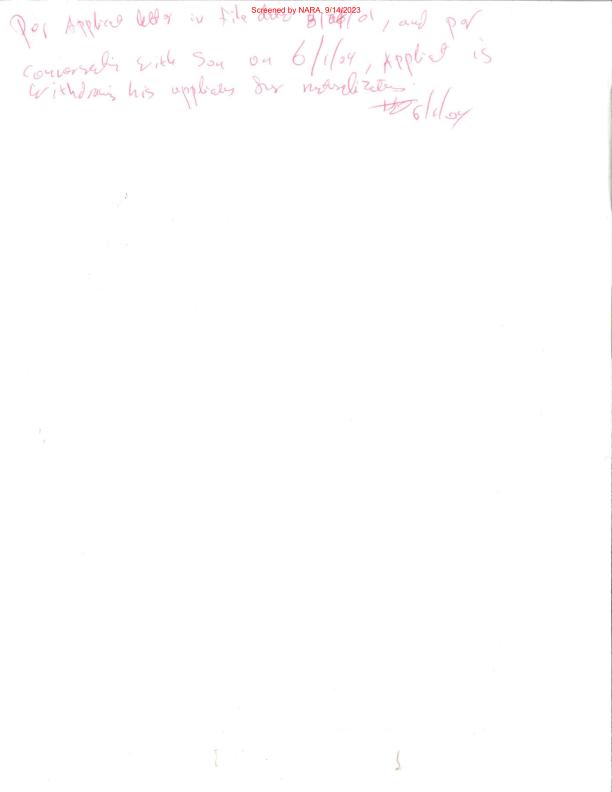 Screened by NARA, 9/14/2023
Per Applicant letter in file date /01, and per
conversation with Son on 6/1/04, Applicant is
withdrawing his application for naturalization.
6/1/04